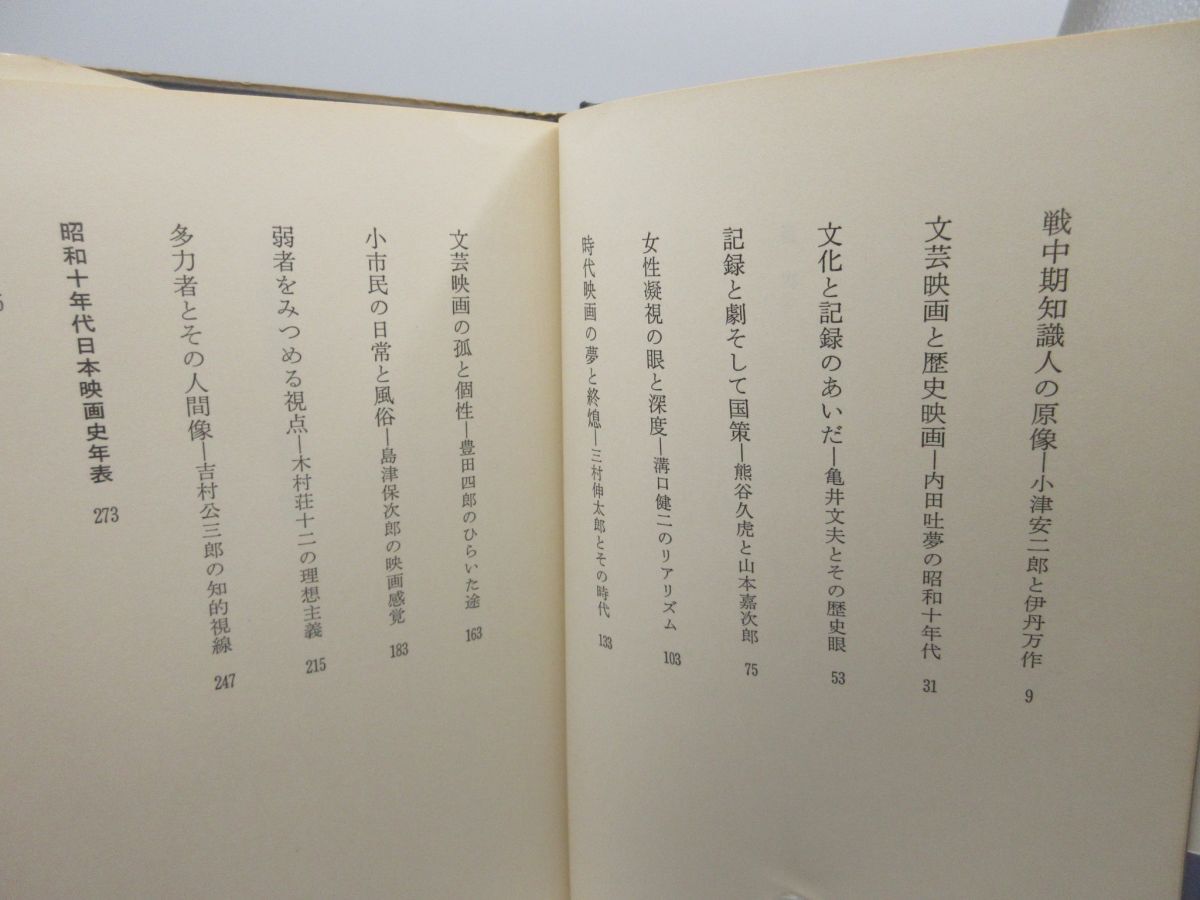 戦中期知識人の原像―小津安二郎と伊丹万作 9
文芸映画と歴史映画―内田吐夢の昭和十年代 31
文化と記録のあいだ―亀井文夫とその歴史眼 53
記録と劇そして国策―熊谷久虎と山本嘉次郎 75
女性凝視の眼と深度―溝口健二のリアリズム 103
時代映画の夢と終熄―三村伸太郎とその時代 133
文芸映画の孤と個性―豊田四郎のひらいた途 163
小市民の日常と風俗―島津保次郎の映画感覚 183
弱者をみつめる視点―木村荘十二の理想主義 215
多力者とその人間像―吉村公三郎の知的視線 247
昭和十年代日本映画史年表 273